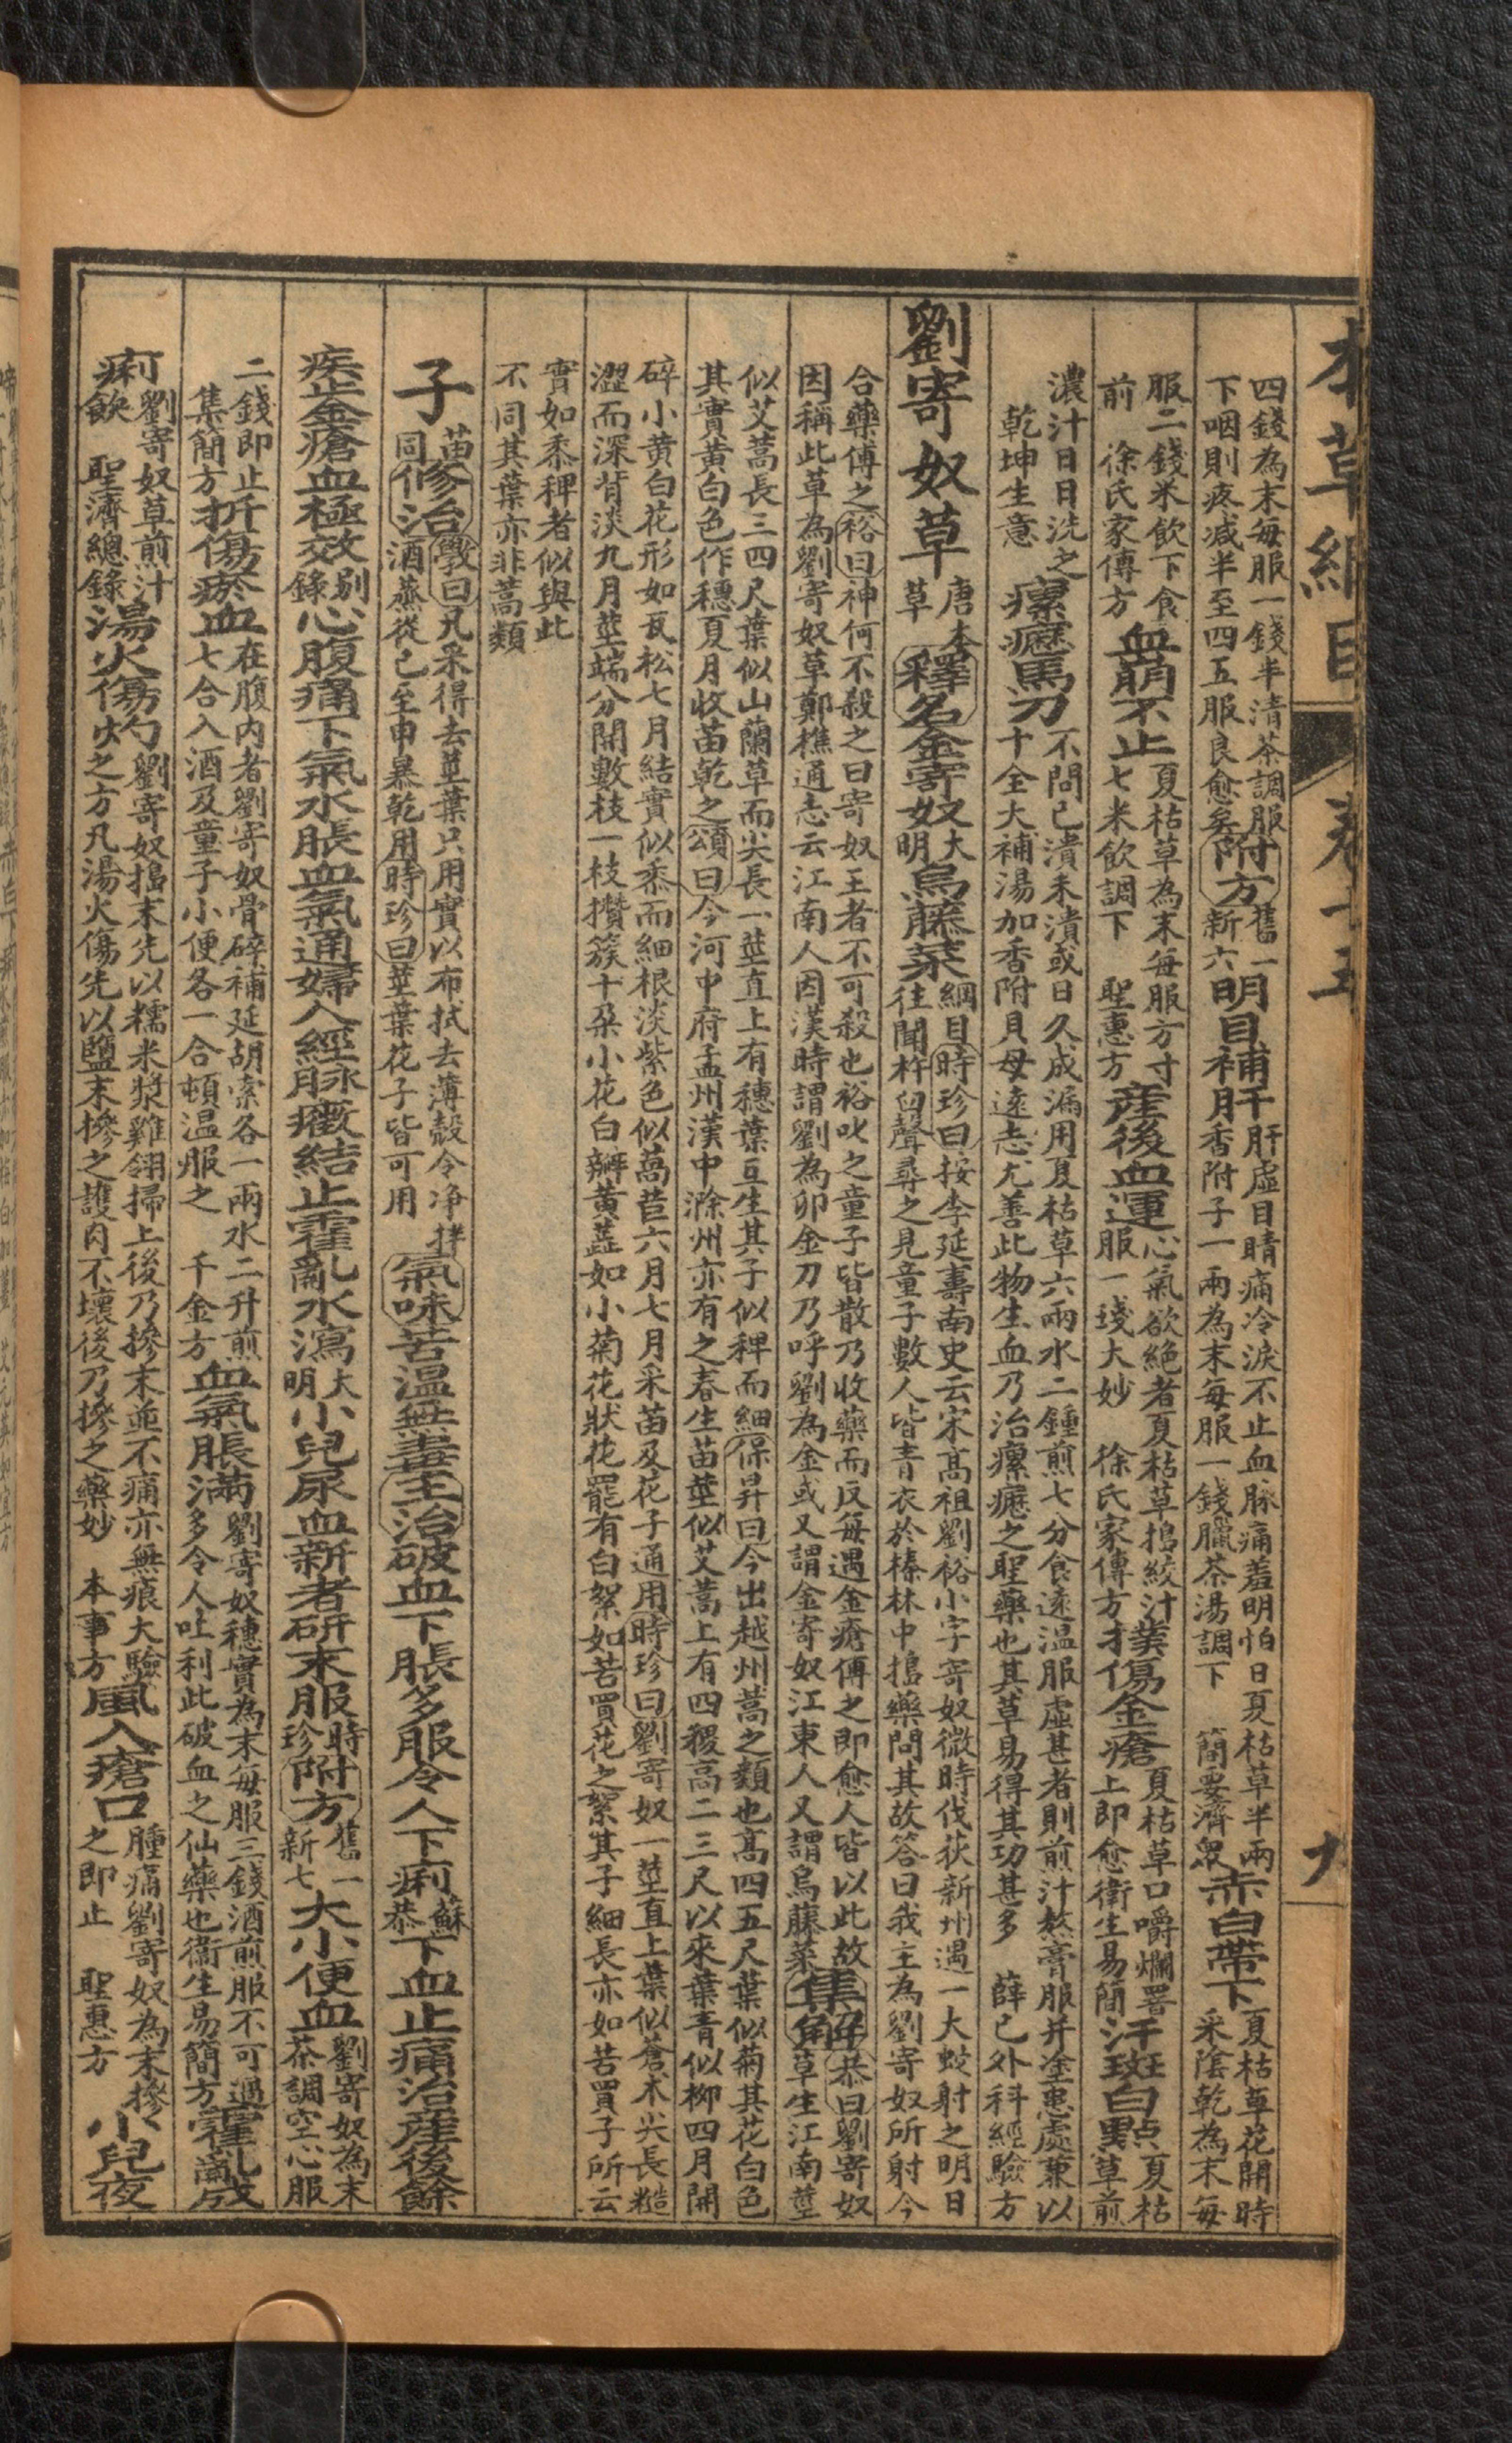 本草綱目 卷十五 九
四錢為末每服一錢半清茶調服下咽則疼减半至四五服良愈矣附方舊一新六明目補肝肝虛目睛痛冷淚不止血脉痛羞明怕日夏枯草半兩香附子一兩為末每服一錢臘茶湯調下 簡要濟眾赤白帶下夏枯草花開時采陰乾為末每
服二錢米飲下食前 徐氏家傳方血崩不止夏枯草為末每服方寸七米飲調下 聖惠方產後血運心氣欲絶者夏枯草搗絞汁服一琖大妙 徐氏家傳方撲傷金瘡夏枯草口嚼爛署上即愈衛生易簡汗斑白點夏枯草煎
濃汁日日洗之 乾坤生意 瘰癧馬刀不問已潰未潰或日久成漏用夏枯草六兩水二鍾煎七分食遠溫服虛甚者則煎汁熬膏服并塗患處兼以十全大補湯加香附貝母遠志尤善此物生血乃治瘰癧之聖藥也其草易得其功甚多 薛己外科經驗方
劉寄奴草唐本草 釋名金寄奴大明烏藤菜綱目時珍曰按李延壽南史云宋高祖劉裕小字寄奴微時伐荻新州遇一大蛇射之明日往聞杵臼聲尋之見童子數人皆青衣於榛林中搗藥問其故答曰我主為劉寄奴所射今
合藥傅之裕曰神何不殺之曰寄奴王者不可殺也裕叱之童子皆散乃收藥而反每遇金瘡傅之即愈人皆以此故因稱此草為劉寄奴草鄭樵通志云江南人因漢時謂劉為卯金刀乃呼劉為金或又謂金寄奴江東人又謂烏藤菜集解恭曰劉寄奴草生江南莖
似艾蒿長三四尺葉似山蘭草而尖長一莖直上有穗葉互生其子似稗而細保昇曰今出越州蒿之類也高四五尺葉似菊其花白色其實黃白色作穗夏月收苗乾之頌曰今河中府孟州漢中滁州亦有之春生苗莖似艾蒿上有四稜高二三尺以來葉青似柳四月開
碎小黃白花形如瓦松七月結實似黍而細根淡紫色似萵苣六月七月采苗及花子通用時珍曰劉寄奴一莖直上葉似蒼朮尖長糙澀而深背淡九月莖端分開數枝一枝攢簇十朵小花白瓣黃蕋如小菊花狀花罷有白絮如苦買花之絮其子細長亦如苦買子所云
實如黍稗者似與此不同其葉亦非蒿類
子苗同修治斆曰凡采得去莖葉只用實以布拭去薄殼令净拌酒蒸從巳至申暴乾用時珍曰莖葉花子皆可用 氣味苦溫無毒主治破血下脹多服令人下痢蘇恭下血止痛治產後餘
疾止金瘡血極效别錄心腹痛下氣水脹血氣通婦人經脉癥結止霍亂水瀉大明小兒尿血新者研末服時珍附方舊一新七大小便血劉寄奴為末茶調空心服
二錢即止 集簡方折傷瘀血在腹內者劉寄奴骨碎補延胡索各一兩水二升煎七合入酒及童子小便各一合頓溫服之 千金方血氣脹滿劉寄奴穗實為末每服三錢酒煎服不可過多令人吐利此破血之仙藥也衞生易簡方霍亂成
痢劉寄奴草煎汁飲 聖濟總錄湯火傷灼劉寄奴搗末先以糯米漿雞翎掃上後乃摻末並不痛亦無痕大驗之方凡湯火傷先以鹽末摻之護肉不壞後乃摻之藥妙 本事方風入瘡口腫痛劉寄奴為末摻之即止 聖惠方 小兒夜